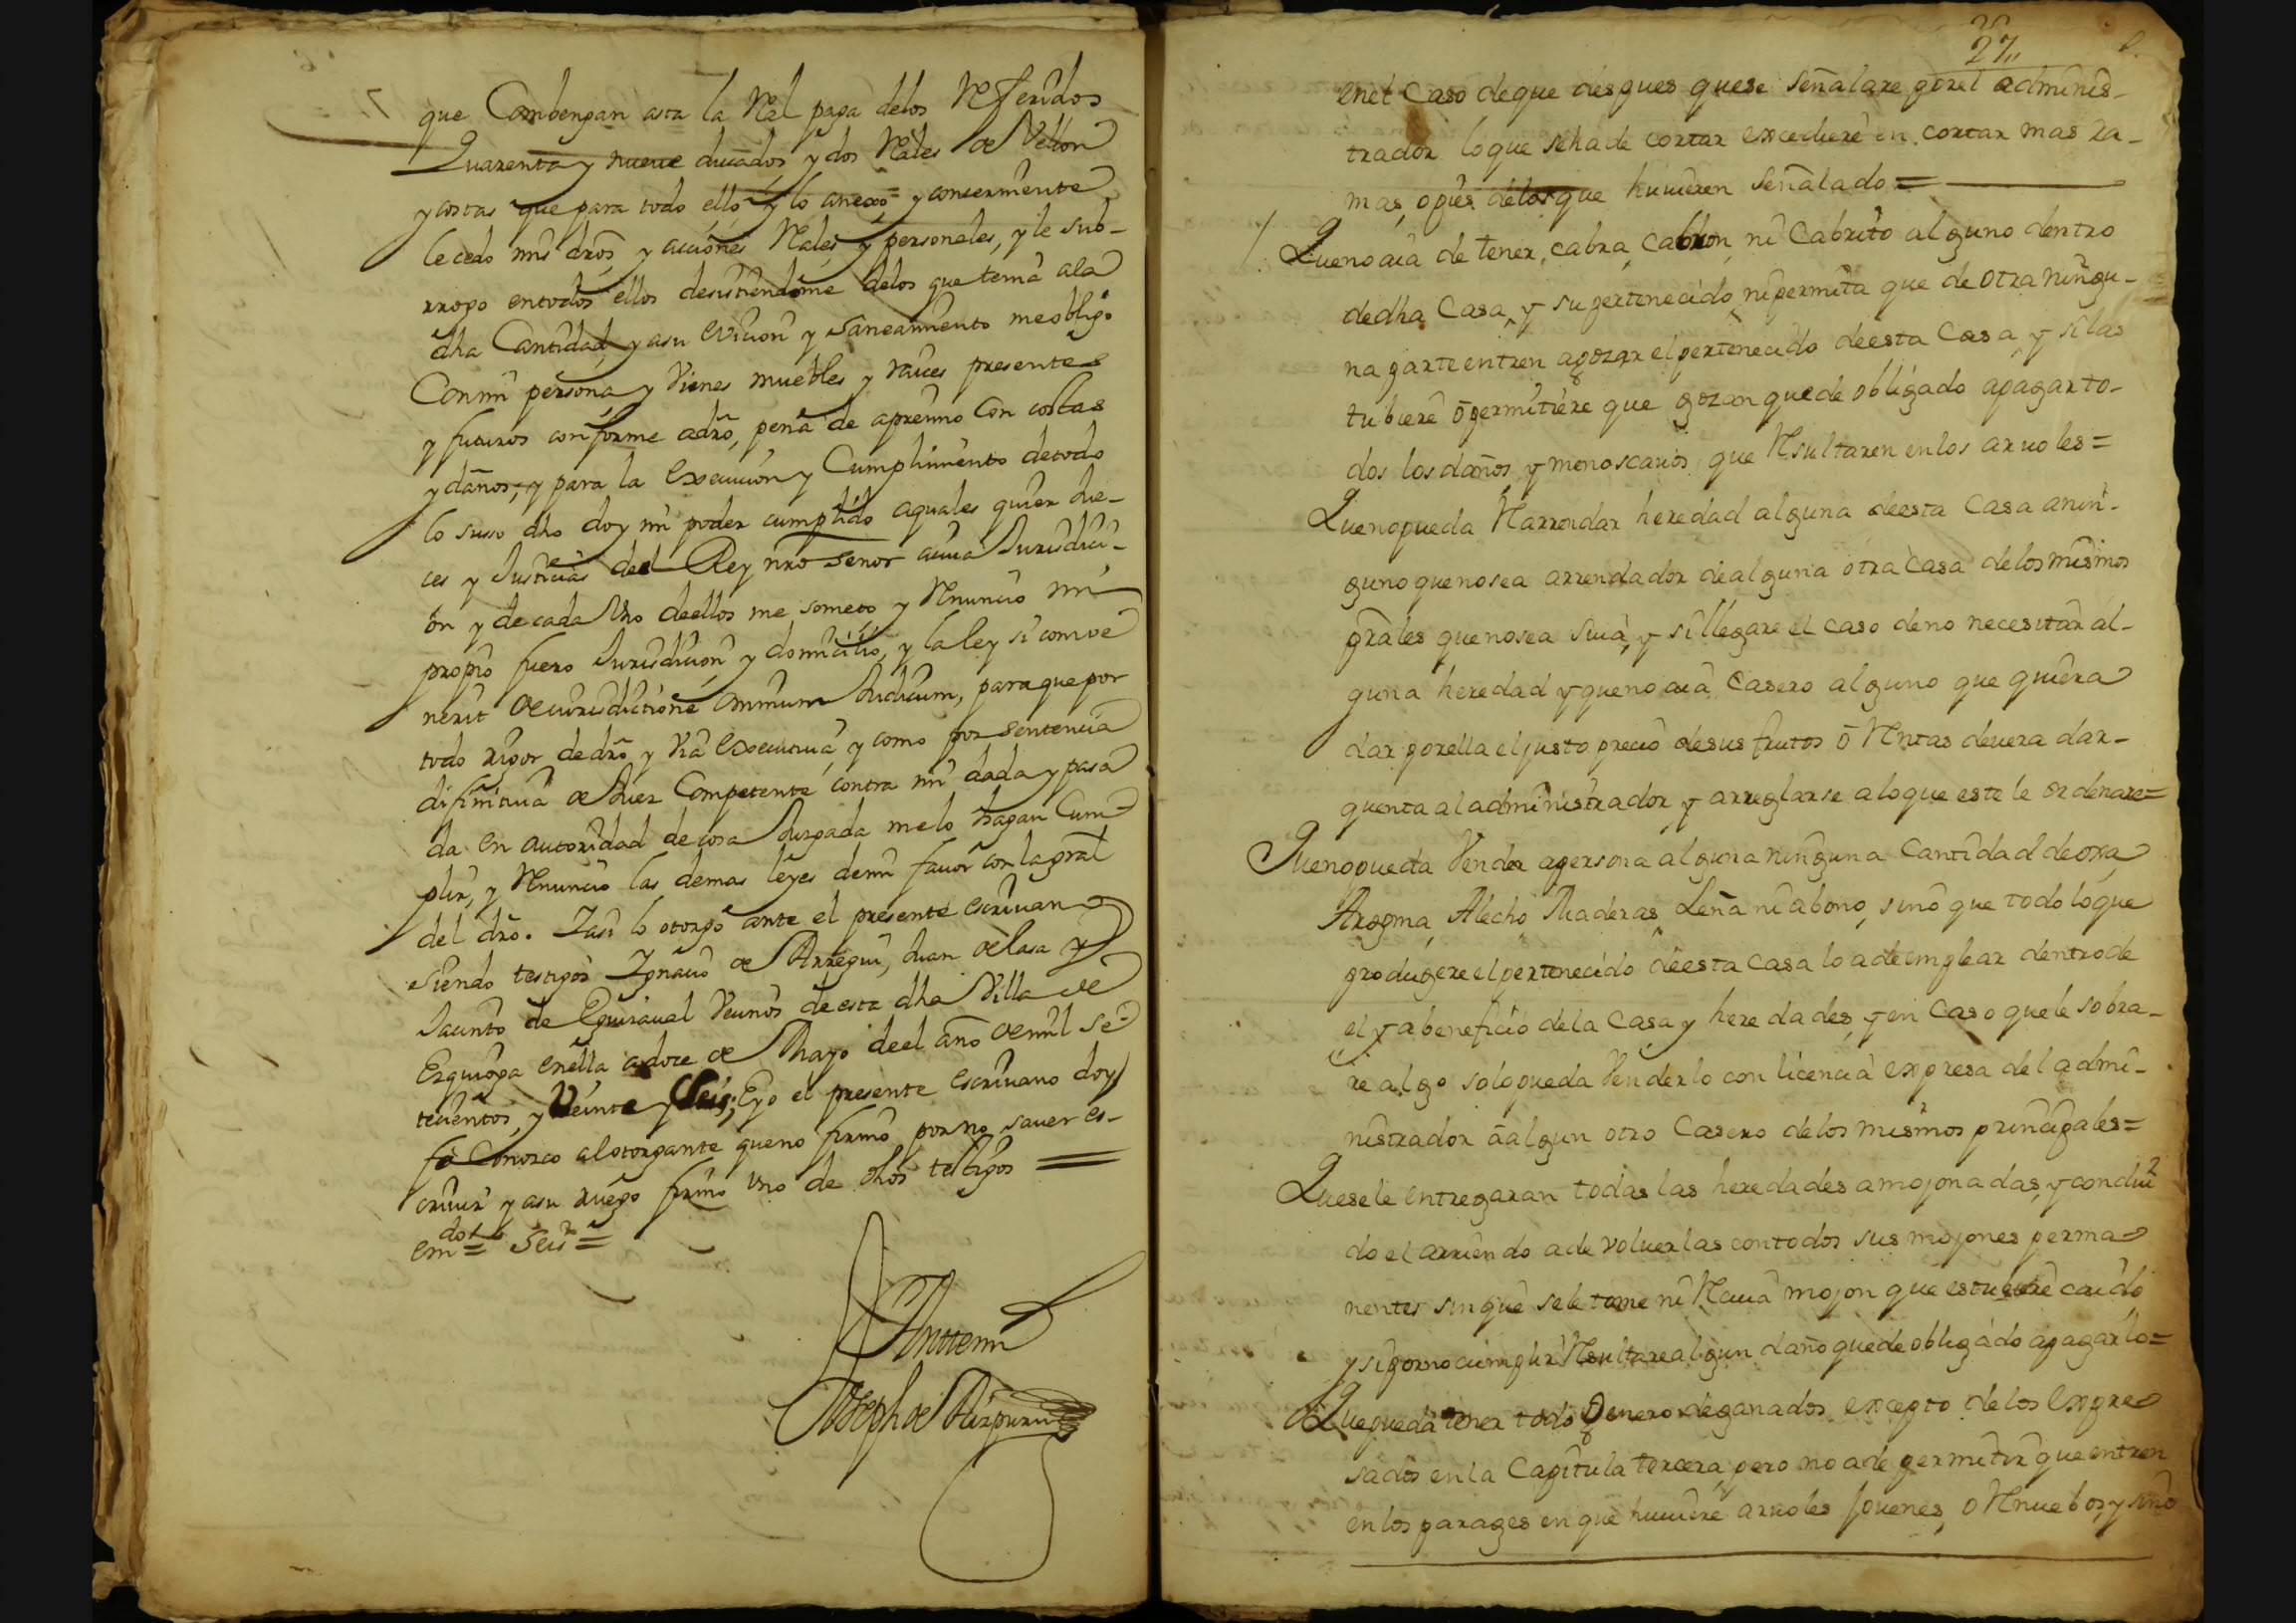 que Combengan asta la Rl paga delos Referidos
Quarenta y nueve ducados, y dos Rales de Vellon
y costas que para todo ello y lo anexo y conserniente
le cedo mis dros, y acciones Rales y personales, y le sub-
rrogo entodos ellos desistiendome delos que tenia ala
dha Cantidad, y asu eviicion y saneamiento me obligo
Conmi persona, y Vienes muebles y raices presentes
y futuros conforme adro, pena de apremio Con costas
y daños, y para la Execucion y Cumplimiento detodo
lo suso dho doy mi poder cumplido aquales quier Jue-
ces y Justicias del Rey nro Señor acuia Jurisdici-
on y de cada Uno deellos me someto, y Renuncio mi
propio fuero Jurisdicion y domicilio, y la ley si conve
nerit de jurisdictione omnium Judicum, para que por
todo rigor de dro y Via Executiva, y como por sentencia
difinitiva de Juez Competente contra mi dada y pasa
da en autoridad de cosa Juzgada melo hagan Cum-
plir, y Renuncio las demas leyes demi favor con la gral
del dro. Y asi lo otorgo ante el presente escrivano
siendo testigos Ygnacio de Arregui, Juan de Lasa y
Jacinto de Eguiraval Vecinos deesta dha Villa de
Ezquioga enella adoce de Mayo deel año de mil se-
tecientos, y Veinte y Seis; Eyo el presente escrivano doy
fe Conozco alotorgante queno firmo por no saver es-
crivir y asu ruego firmo Uno de dhos testigos =
emdo = Seis =
Antemi
Joseph de Aizpuru
27
enel caso deque despues quese señalare porel adminis-
trador loque seha de cortar excediere en cortar mas ra-
mas, opies delos que huuieren señalado =
Quenoaia de tener, cabra, cabron, ni Cabrito alguno dentro
dedha Casa, y su pertenecido, nipermita que de otra ningu-
na parte entren agozar el pertenecido deesta Casa, y silas
tubiere ō permitiere que gozan quede obligado apagar to-
dos los daños, y menoscavos, que Resultaren enlos arvoles =
Quenopueda Rarrendar heredad alguna deesta Casa anin-
guno quenosea arrendador dealguna otra Casa delos mismos
prales quenosea suia, y sillegare el caso deno necesitar al-
guna heredad yqueno aia Casero alguno que quiera
dar porella eljusto precio desus frutos ō Rentas devera dar-
quenta aladministrador y arreglarse aloque este le ordenare =
Quenopueda Vender apersona alguna ninguna Cantidad deoxa,
Arogma, Alecho, Maderas, Leña ni abono, sino que todo loque
produgere elpertenecido deesta casa lo ade emplear dentrode
el y abeneficio dela Casa, y heredades, yen Caso quele sobra-
re algo solopueda Venderlo con licencia expresa del admi-
nistrador āalgun otro Casero delos mismos principales =
Quesele entregaran todas las heredades amojonadas, y conclui
do el arriendo ade volverlas contodos sus mojones perma
nentes sinque sele tome ni Reciva mojon que estuviere caido,
y siporno cumplir Resultare algun daño quede obligado apagarlo =
Quepueda tener todo Genero deganados, excepto delos Expre
sados enla Capitula tercera, pero no ade permitir que entren
enlos parages enque huuiere arvoles Jovenes, o Renuebos, y sino